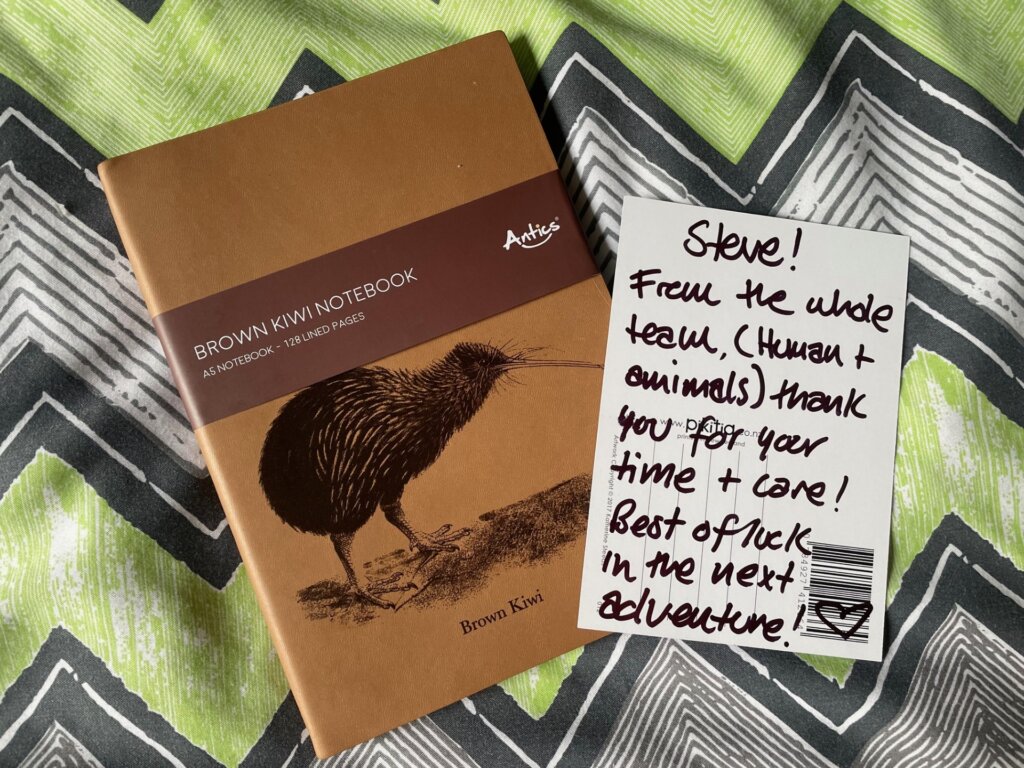 Antics
BROWN KIWI NOTEBOOK
A5 NOTEBOOK - 128 LINED PAGES
Brown Kiwi
Steve!
From the whole
team, (Human +
animals) thank
you for your
time + care!
Best of luck
in the next
adventure!
www.pikitia.co.nz